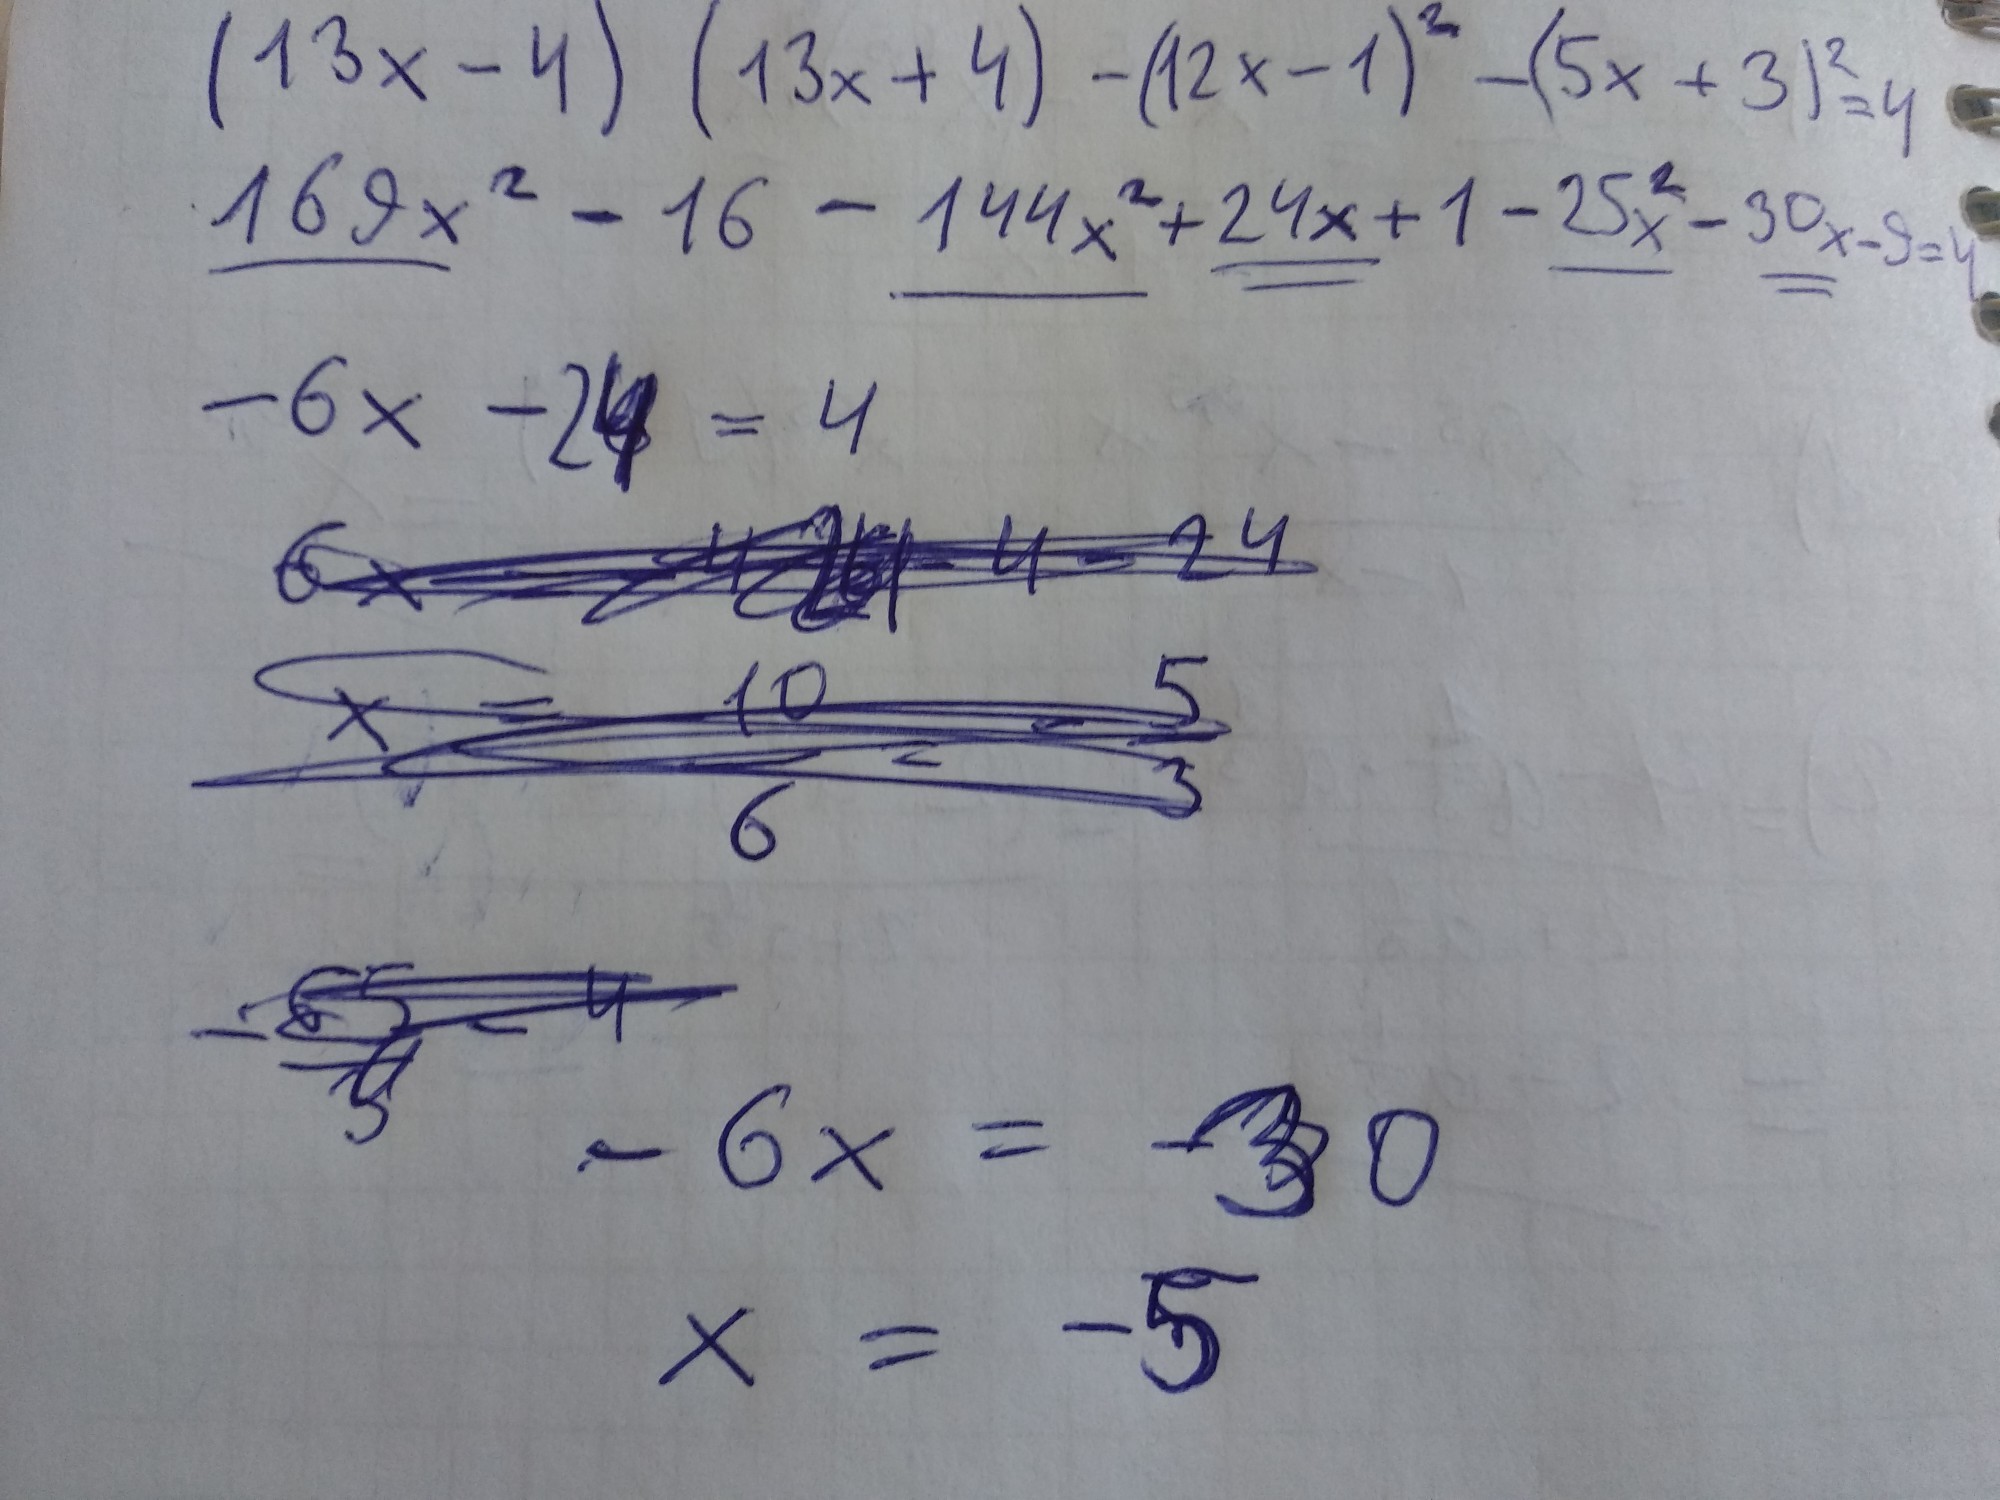 (13x - 4) (13x + 4) - (12x - 1)² - (5x + 3)² = 4
169x² - 16 - 144x² + 24x + 1 - 25x² - 30x - 9 = 4
- 6x - 24 = 4
6x = 4 - 24
x = 10/6 = 5/3
- 6x = - 30
x = - 5